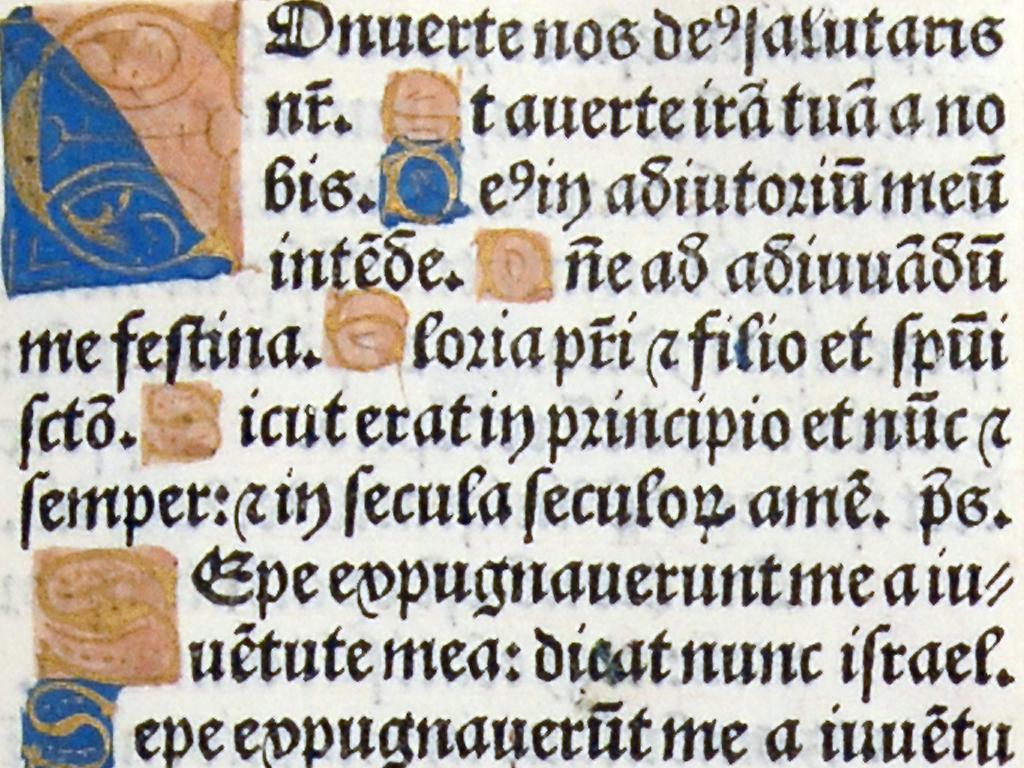 COnuerte nos deꝰ ſalutaris
nr̃. Et auerte irã tuã a no
bis. Deꝰ in adiutoriũ meũ
intẽde. Dñe ad adiuuãdũ
me feſtina. Gloria pr̃i ⁊ filio et ſpũi
ſctõ. Sicut erat in principio et nũc ⁊
ſemper: ⁊ in ſecula ſeculoꝝ amẽ. p̃s.
SEpe expugnauerunt me a iu⸗
uẽtute mea: dicat nunc iſrael.
Sepe expugnauerũt me a iuuẽtu